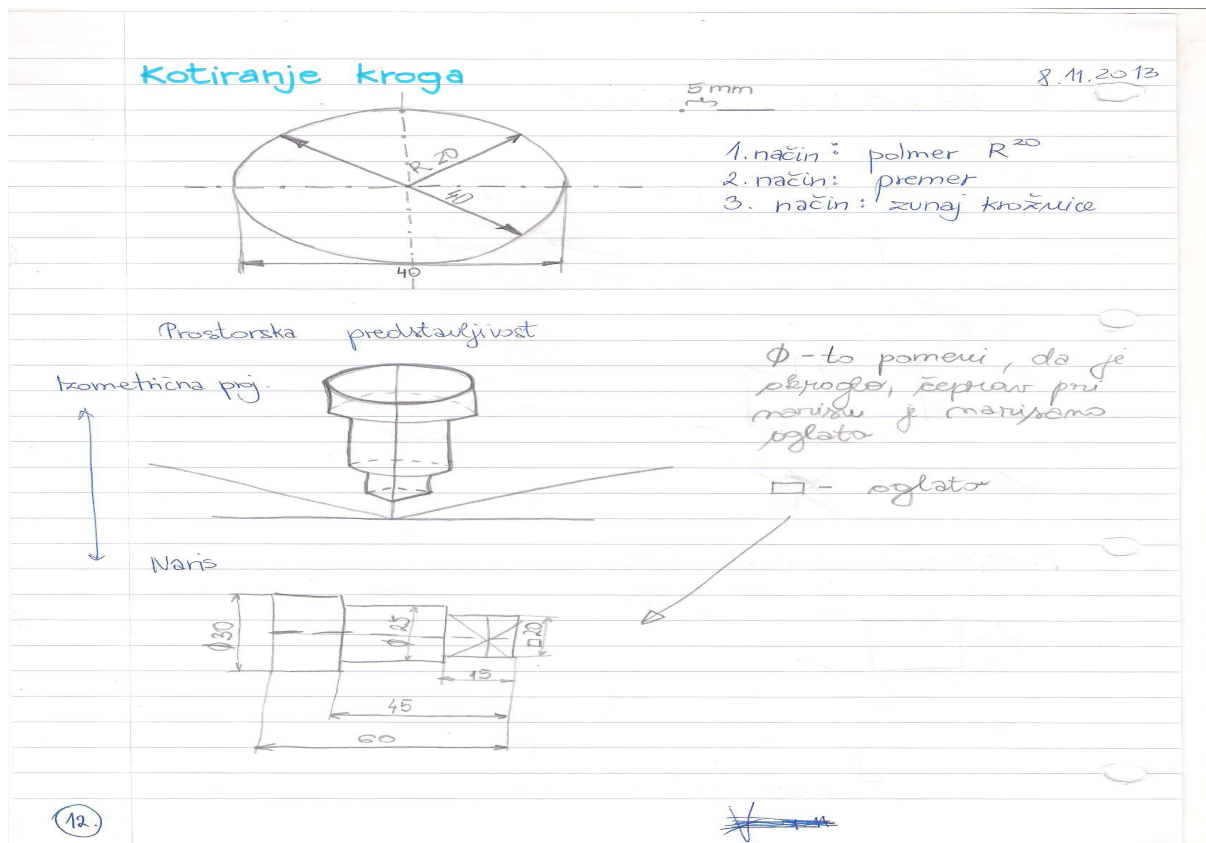 Kotiranje kroga
8.11.2013
5 mm
R 20
40
40
1. način: polmer R20
2. način: premer
3. način: zunaj krožnice
Prostorska predstavljivost
Izometrična proj.
Φ - to pomeni, da je
okroglo, čeprav pri
narisu je narisano
oglato
▭ - oglato
Naris
ϕ30
ϕ25
□20
15
45
60
12.